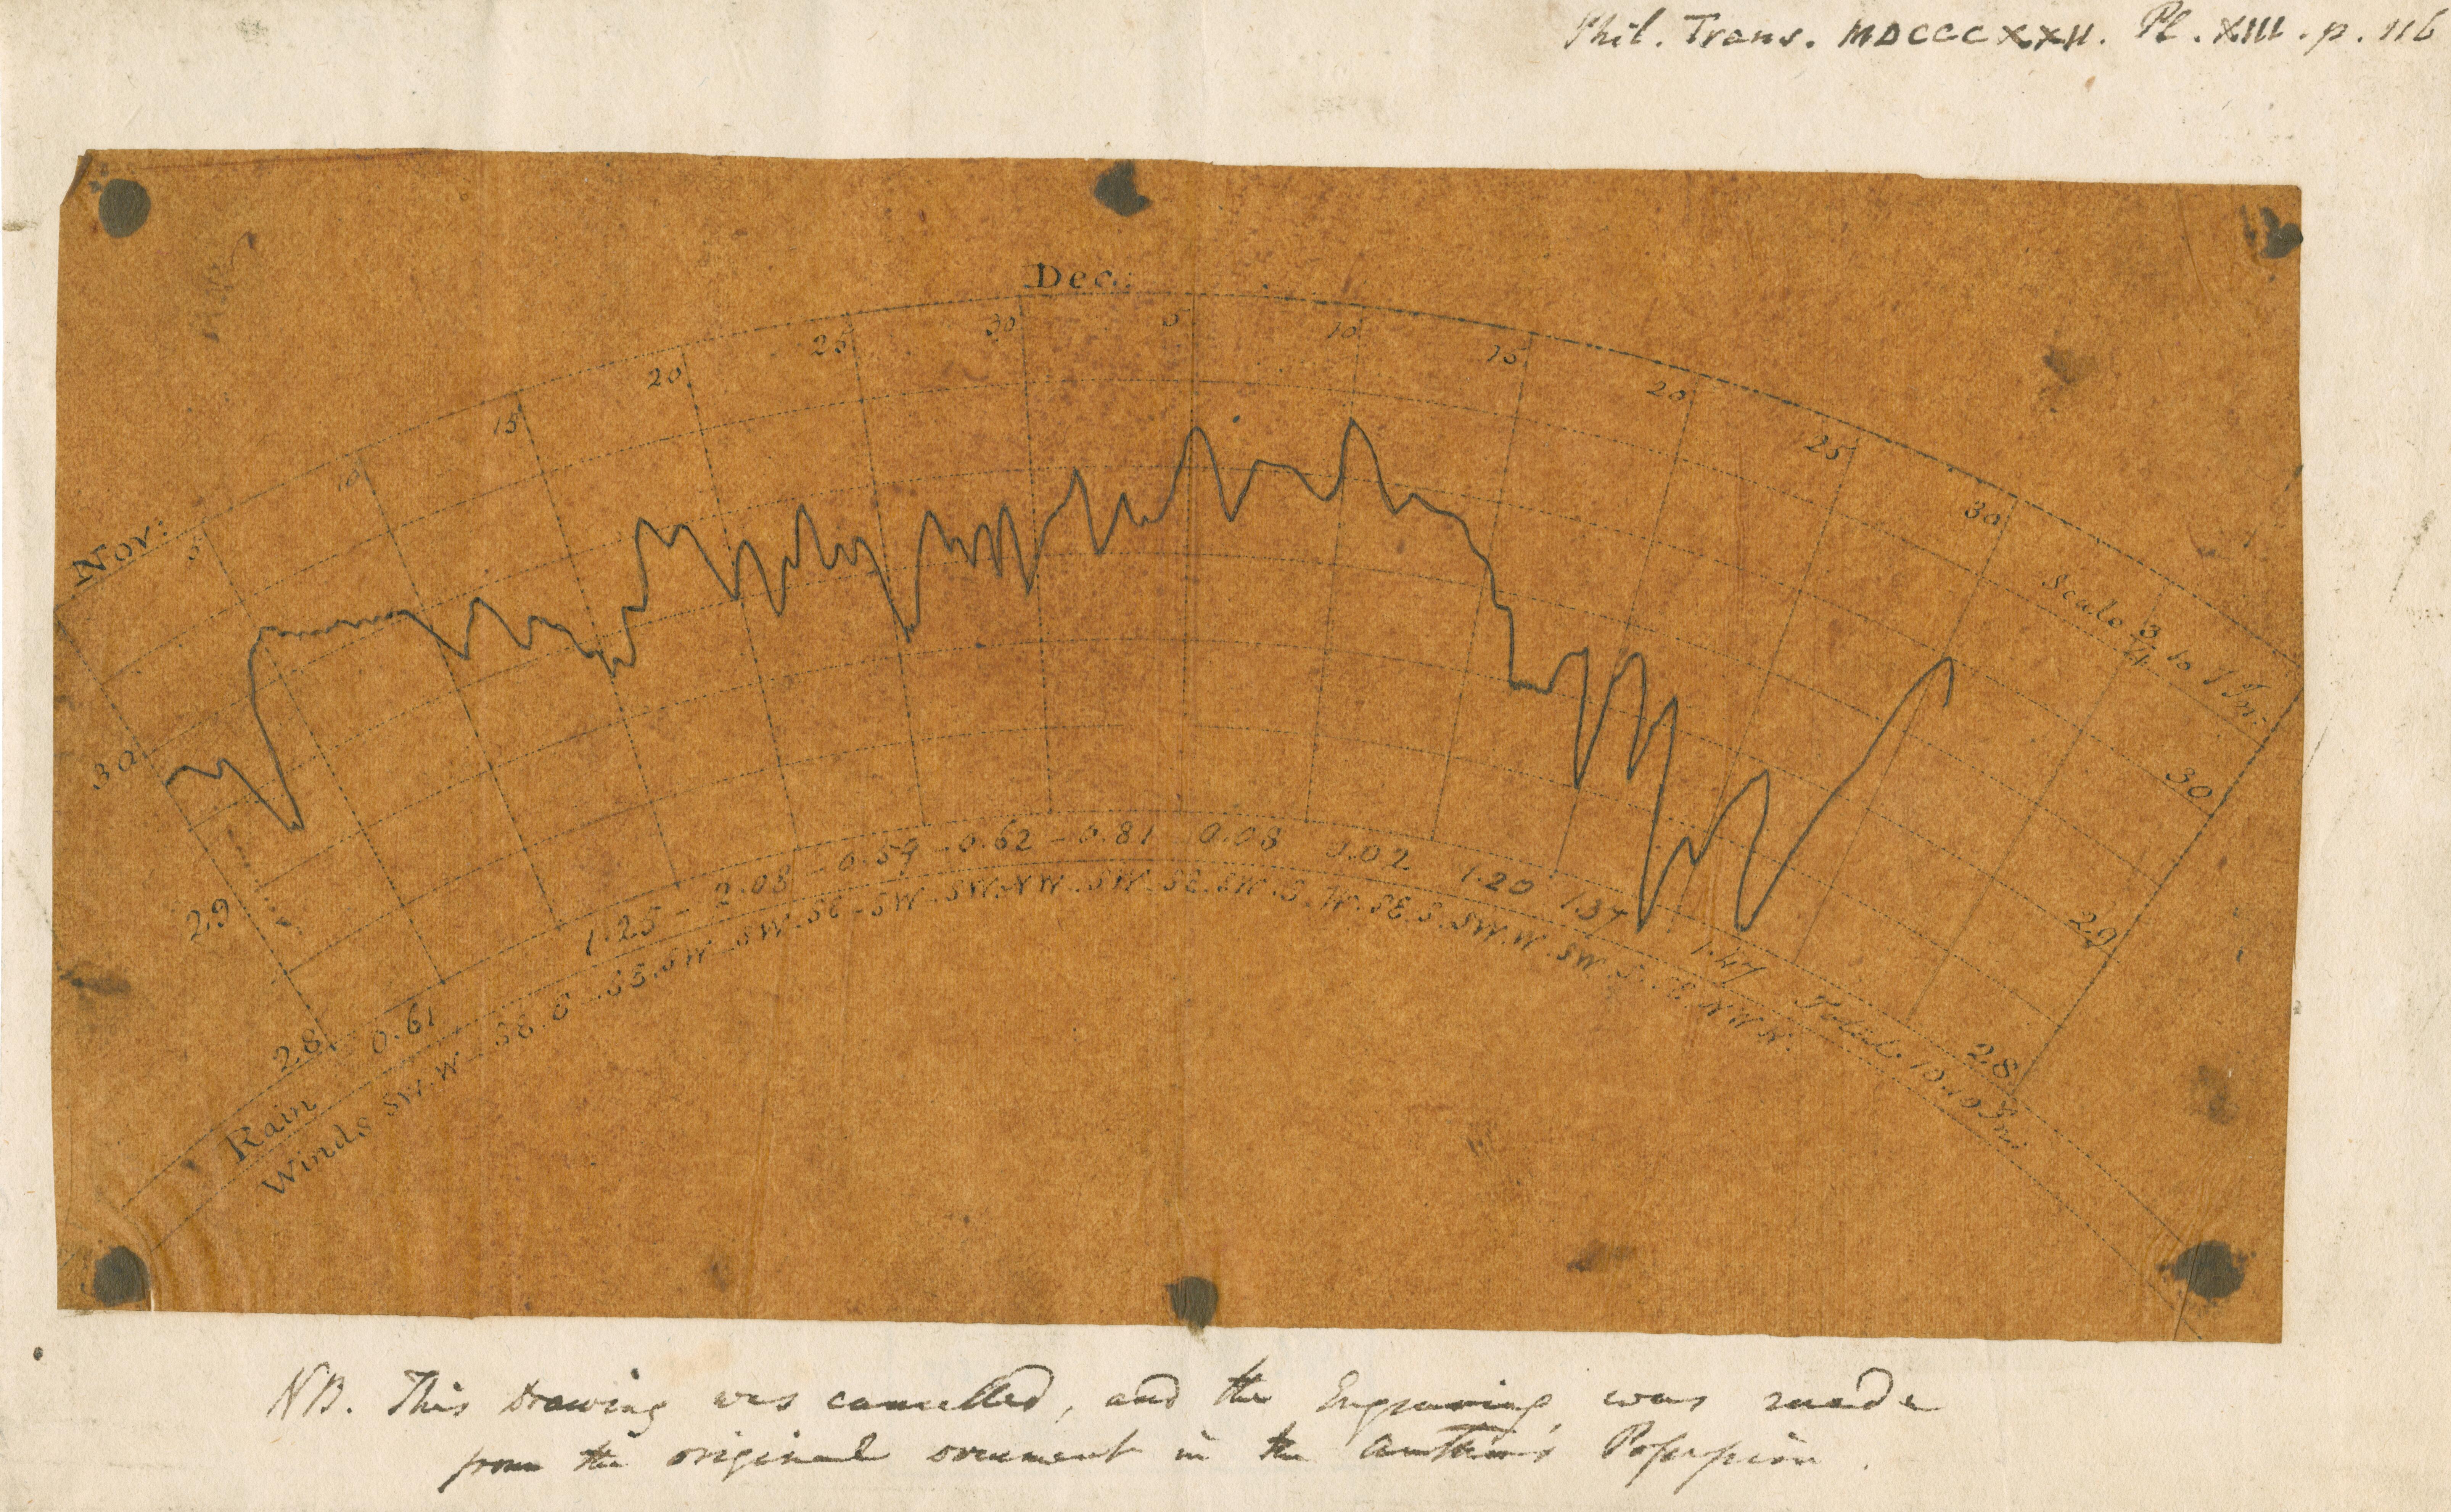 Phil. Trans. MDCCCXXII. Pl. XIII. p. 116
Dec.:
Nov:
5 10 15 20 25 30 5 10 15 20 25 30
Scale 3/4 to 1 In:
30
29
28
30
29
28
Rain 0.61 1.25 - 2.08 - 0.59 - 0.62 - 0.81 0.08 0.02 1.20 1.37 1.47 Total
Winds SW.W - SE.
NB. This Drawing was cancelled, and the Engraving was made
from the original document in the Author's Possession.